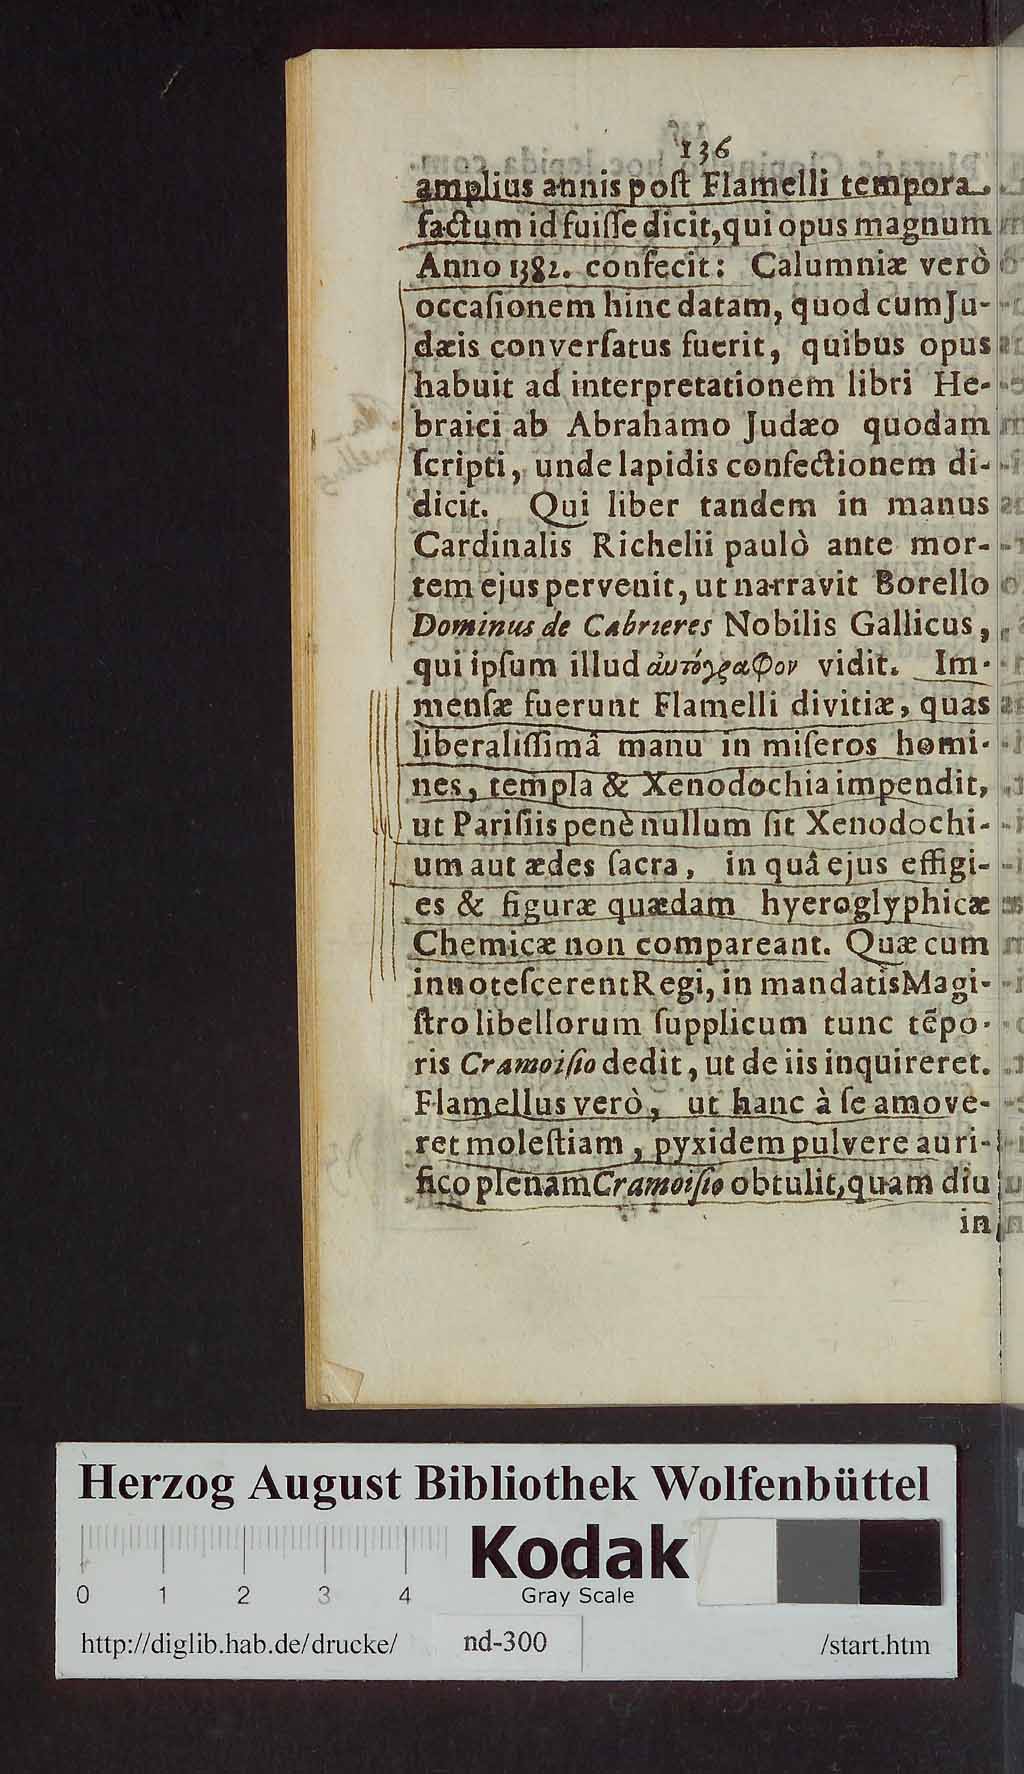 136
amplius annis poſt Flamelli tempora
factum id fuiſſe dicit, qui opus magnum
Anno 1382. confecit: Calumniæ verò
occaſionem hinc datam, quod cum Ju-
dæis converſatus fuerit, quibus opus
habuit ad interpretationem libri He-
braici ab Abrahamo Judæo quodam
ſcripti, unde lapidis confectionem di-
dicit. Qui liber tandem in manus
Cardinalis Richelii paulò ante mor-
tem ejus pervenit, ut narravit Borello
Dominus de Cabrieres Nobilis Gallicus,
qui ipſum illud αὐτόγραφον vidit. Im-
menſæ fuerunt Flamelli divitiæ, quas
liberaliſſimâ manu in miſeros homi-
nes, templa & Xenodochia impendit,
ut Pariſiis penè nullum ſit Xenodochi-
um aut ædes ſacra, in quâ ejus effigi-
es & figuræ quædam hyeroglyphicæ
Chemicæ non compareant. Quæ cum
innoteſcerent Regi, in mandatis Magi-
ſtro libellorum ſupplicum tunc tẽpo-
ris Cramoiſio dedit, ut de iis inquireret.
Flamellus verò, ut hanc à ſe amove-
ret moleſtiam, pyxidem pulvere auri-
fico plenam Cramoiſio obtulit, quam diu
in
Herzog August Bibliothek Wolfenbüttel
Kodak
Gray Scale
0 1 2 3 4
http://diglib.hab.de/drucke/ nd-300 /start.htm